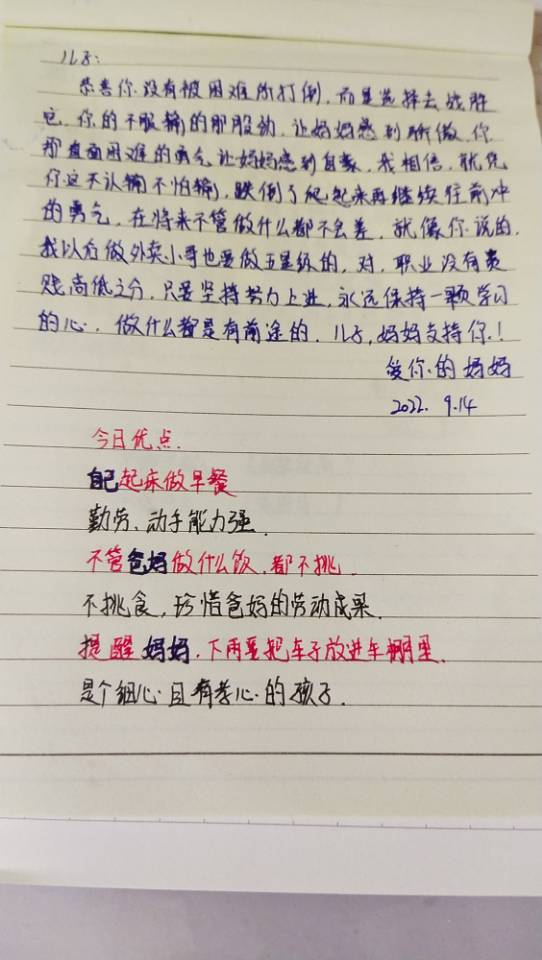 儿子：
恭喜你没有被困难所打倒，而是选择去战胜
它，你的不服输的那股劲，让妈妈感到骄傲，你
那直面困难的勇气让妈妈感到自豪，我相信，就凭
你这不认输不怕输，跌倒了爬起来再继续往前冲
的勇气，在将来不管做什么都不会差，就像你说的，
我以后做外卖小哥也要做五星级的，对，职业没有贵
贱高低之分，只要坚持努力上进，永远保持一颗学习
的心，做什么都是有前途的，儿子，妈妈支持你！
爱你的妈妈
2022. 9.14
今日优点
自己起床做早餐
勤劳、动手能力强.
不管爸妈做什么饭，都不挑.
不挑食，珍惜爸妈的劳动成果.
提醒妈妈，下雨要把车子放进车棚里.
是个细心且有孝心的孩子.